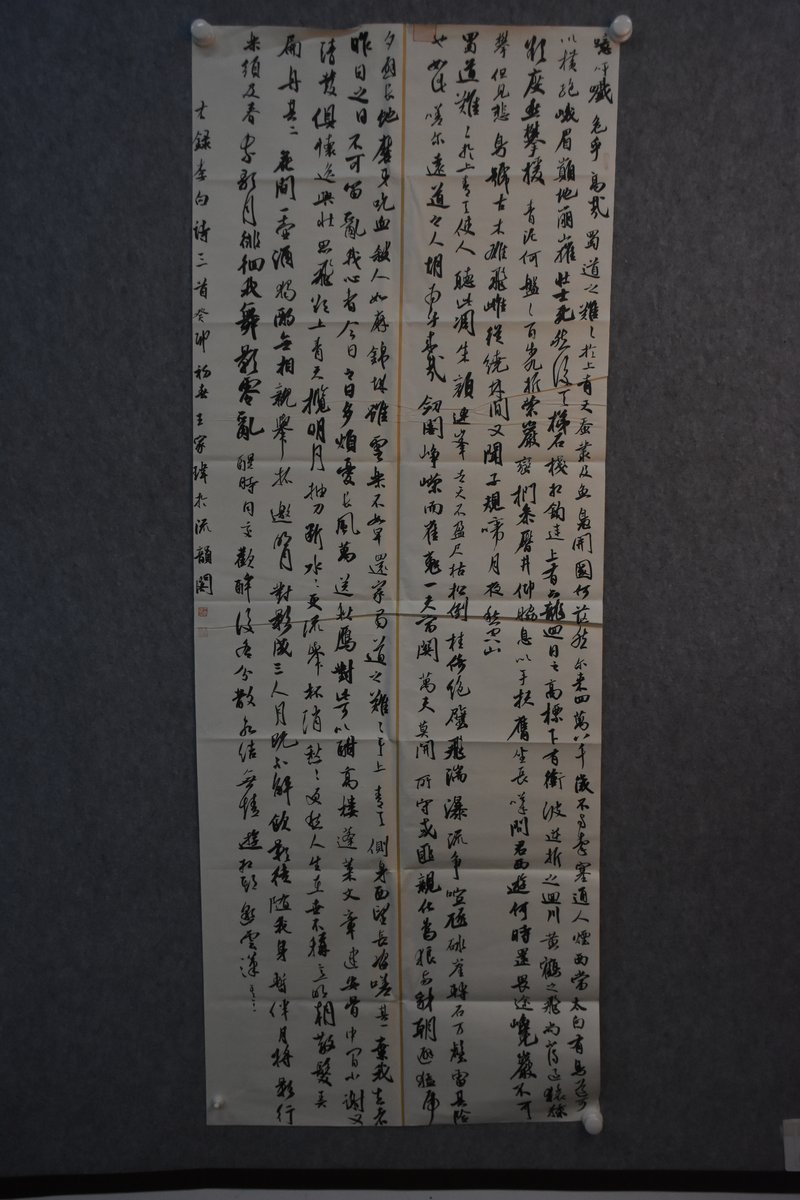 噫吁戲危乎高哉蜀道之難難於上青天蚕叢及魚鳧開國何茫然尔来四萬八千歲不与秦塞通人煙西當太白有鳥道可
以橫絕峨眉巔地崩山摧壯士死然後天梯石棧相鈎連上有六龍迴日之高標下有衝波逆折之迴川黄鶴之飛尚不得過猿猱
欲度愁攀援青泥何盤盤百步九折縈巖巒捫參歷井仰脅息以手撫膺坐長嘆問君西遊何時還畏途巉巖不可
攀但見悲鳥號古木雄飛雌從繞林間又聞子規啼月夜愁空山
蜀道難難於上青天使人聽此凋朱顏連峯去天不盈尺枯松倒挂倚絕壁飛湍瀑流爭喧豗砯崖轉石万壑雷其險
也如此嗟尔遠道之人胡為乎来哉劍閣崢嶸而崔嵬一夫當關萬夫莫開所守或匪親化為狼与豺朝避猛虎
夕避長蛇磨牙吮血殺人如麻錦城雖云樂不如早還家蜀道之難難於上青天側身西望長咨嗟其一棄我去者
昨日之日不可留亂我心者今日之日多煩憂長風萬里送秋鴈對此可以酣高樓蓬萊文章建安骨中間小謝又
清發俱懷逸興壯思飛欲上青天攬明月抽刀斷水水更流舉杯消愁愁更愁人生在世不稱意明朝散髮弄
扁舟其二花間一壺酒獨酌無相親舉杯邀明月對影成三人月既不解飲影徒隨我身暫伴月將影行
樂須及春我歌月徘徊我舞影零亂醒時同交歡醉後各分散永結無情遊相期邈雲漢其三
右錄李白詩三首癸卯初春王家瑋於流韻閣